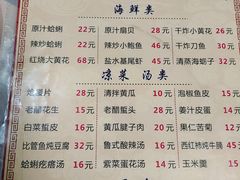 海鲜类
原汁蛤蜊 22元 原汁扇贝 28元 干炸小黄花 26元
辣炒蛤蜊 22元 辣炒小鲍鱼 46元 干炸刀鱼 30元
红烧大黄花 68元 盐水基尾虾 45元 清蒸海蛎子 32元
凉菜 汤类
炝腰片 28元 清拌黄瓜 10元 泡椒鱼皮
老醋花生 15元 老醋蜇头 28元 姜汁皮蛋 14元
白菜蜇皮 16元 黄瓜腱子肉 20元 果仁苦菊 12元
比管鱼炖豆腐 32元 鲁式酸辣汤 16元 西红柿炖牛腩
蛤蜊疙瘩汤 16元 紫菜蛋花汤 14元 玉米羹 15元